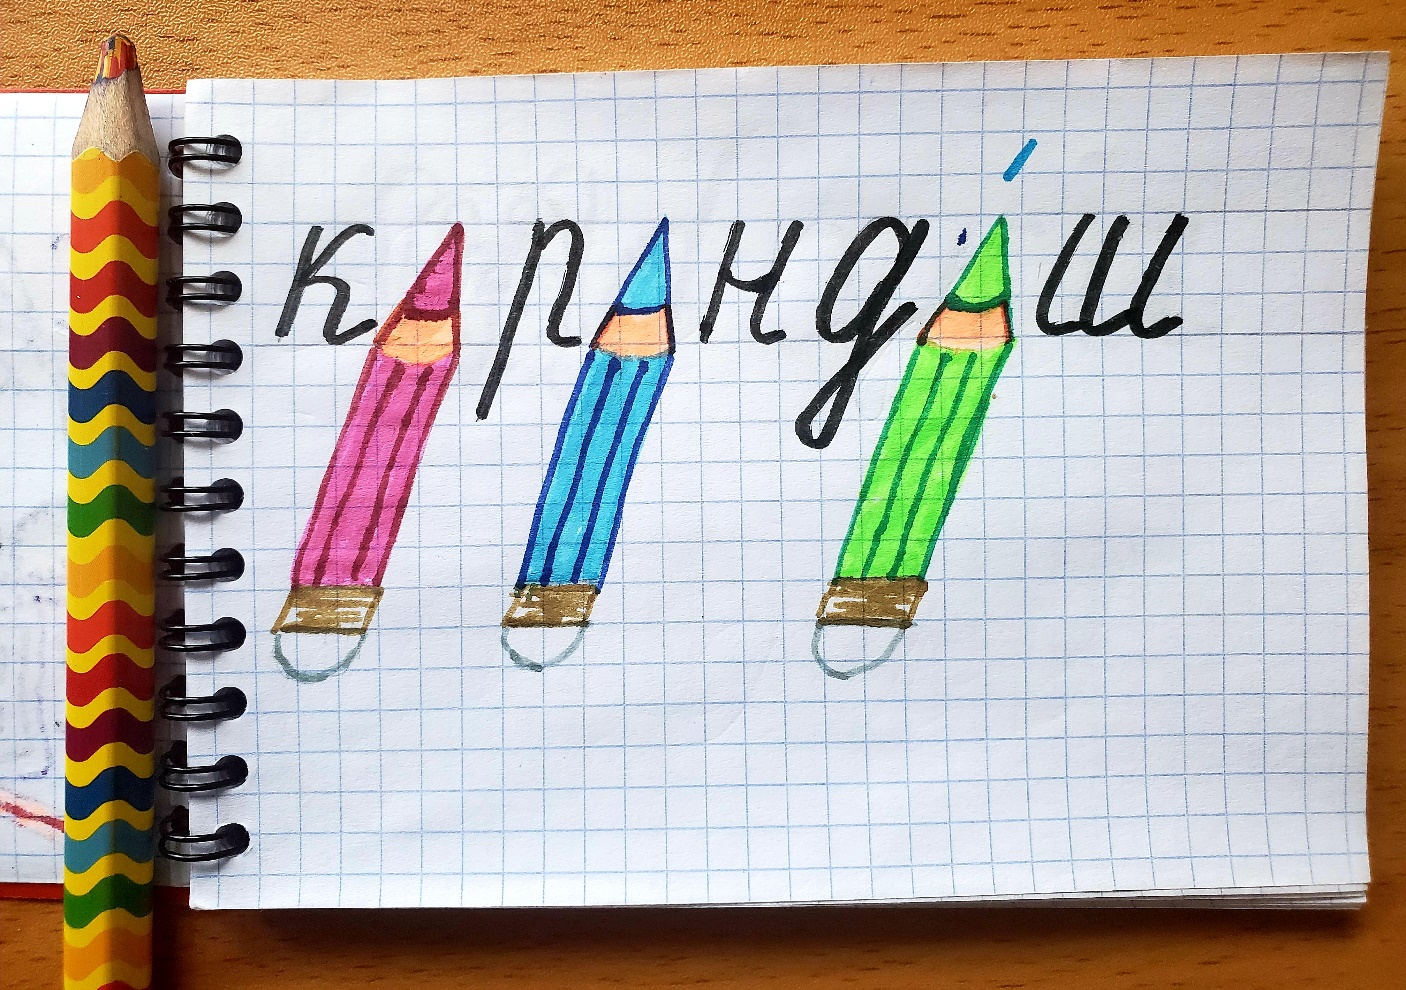 каранда́ш